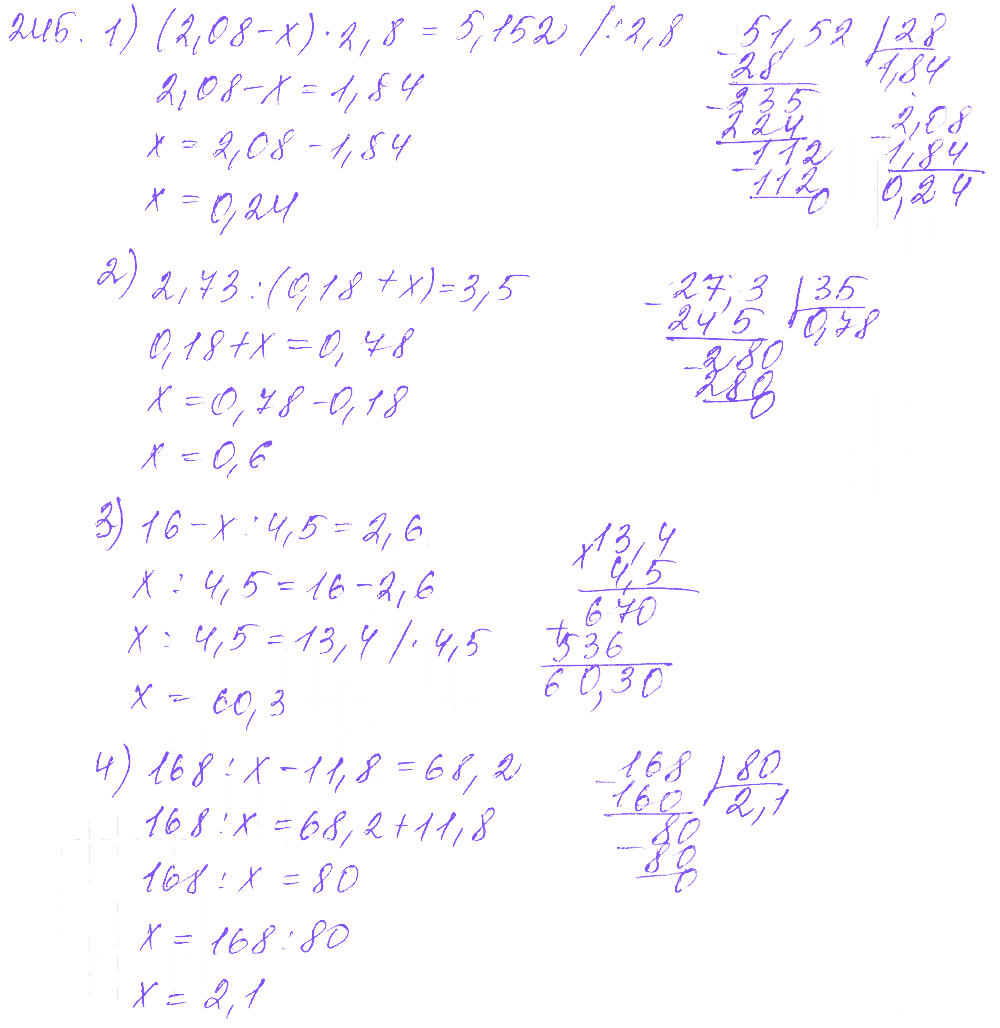 245. 1) (2,08-x)·2,8 = 5,152 /:2,8
2,08-x = 1,84
x = 2,08 - 1,84
x = 0,24
- 51,52 | 28
28 1,84
- 235
224
- 112
112
0
- 2,08
1,84
0,24
2) 2,73:(0,18+x)=3,5
0,18+x=0,78
x=0,78-0,18
x=0,6
- 27,3 | 35
245 0,78
- 280
280
0
3) 16-x:4,5=2,6
x:4,5=16-2,6
x:4,5=13,4 /·4,5
x = 60,3
x 13,4
4,5
670
+ 536
60,30
4) 168:x-11,8=68,2
168:x=68,2+11,8
168:x=80
x=168:80
x=2,1
- 168 | 80
160 2,1
- 80
80
0